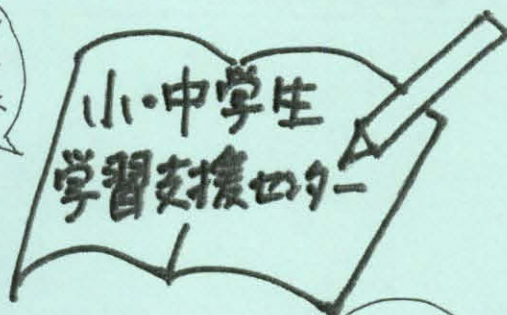 小・中学生
学習支援センター